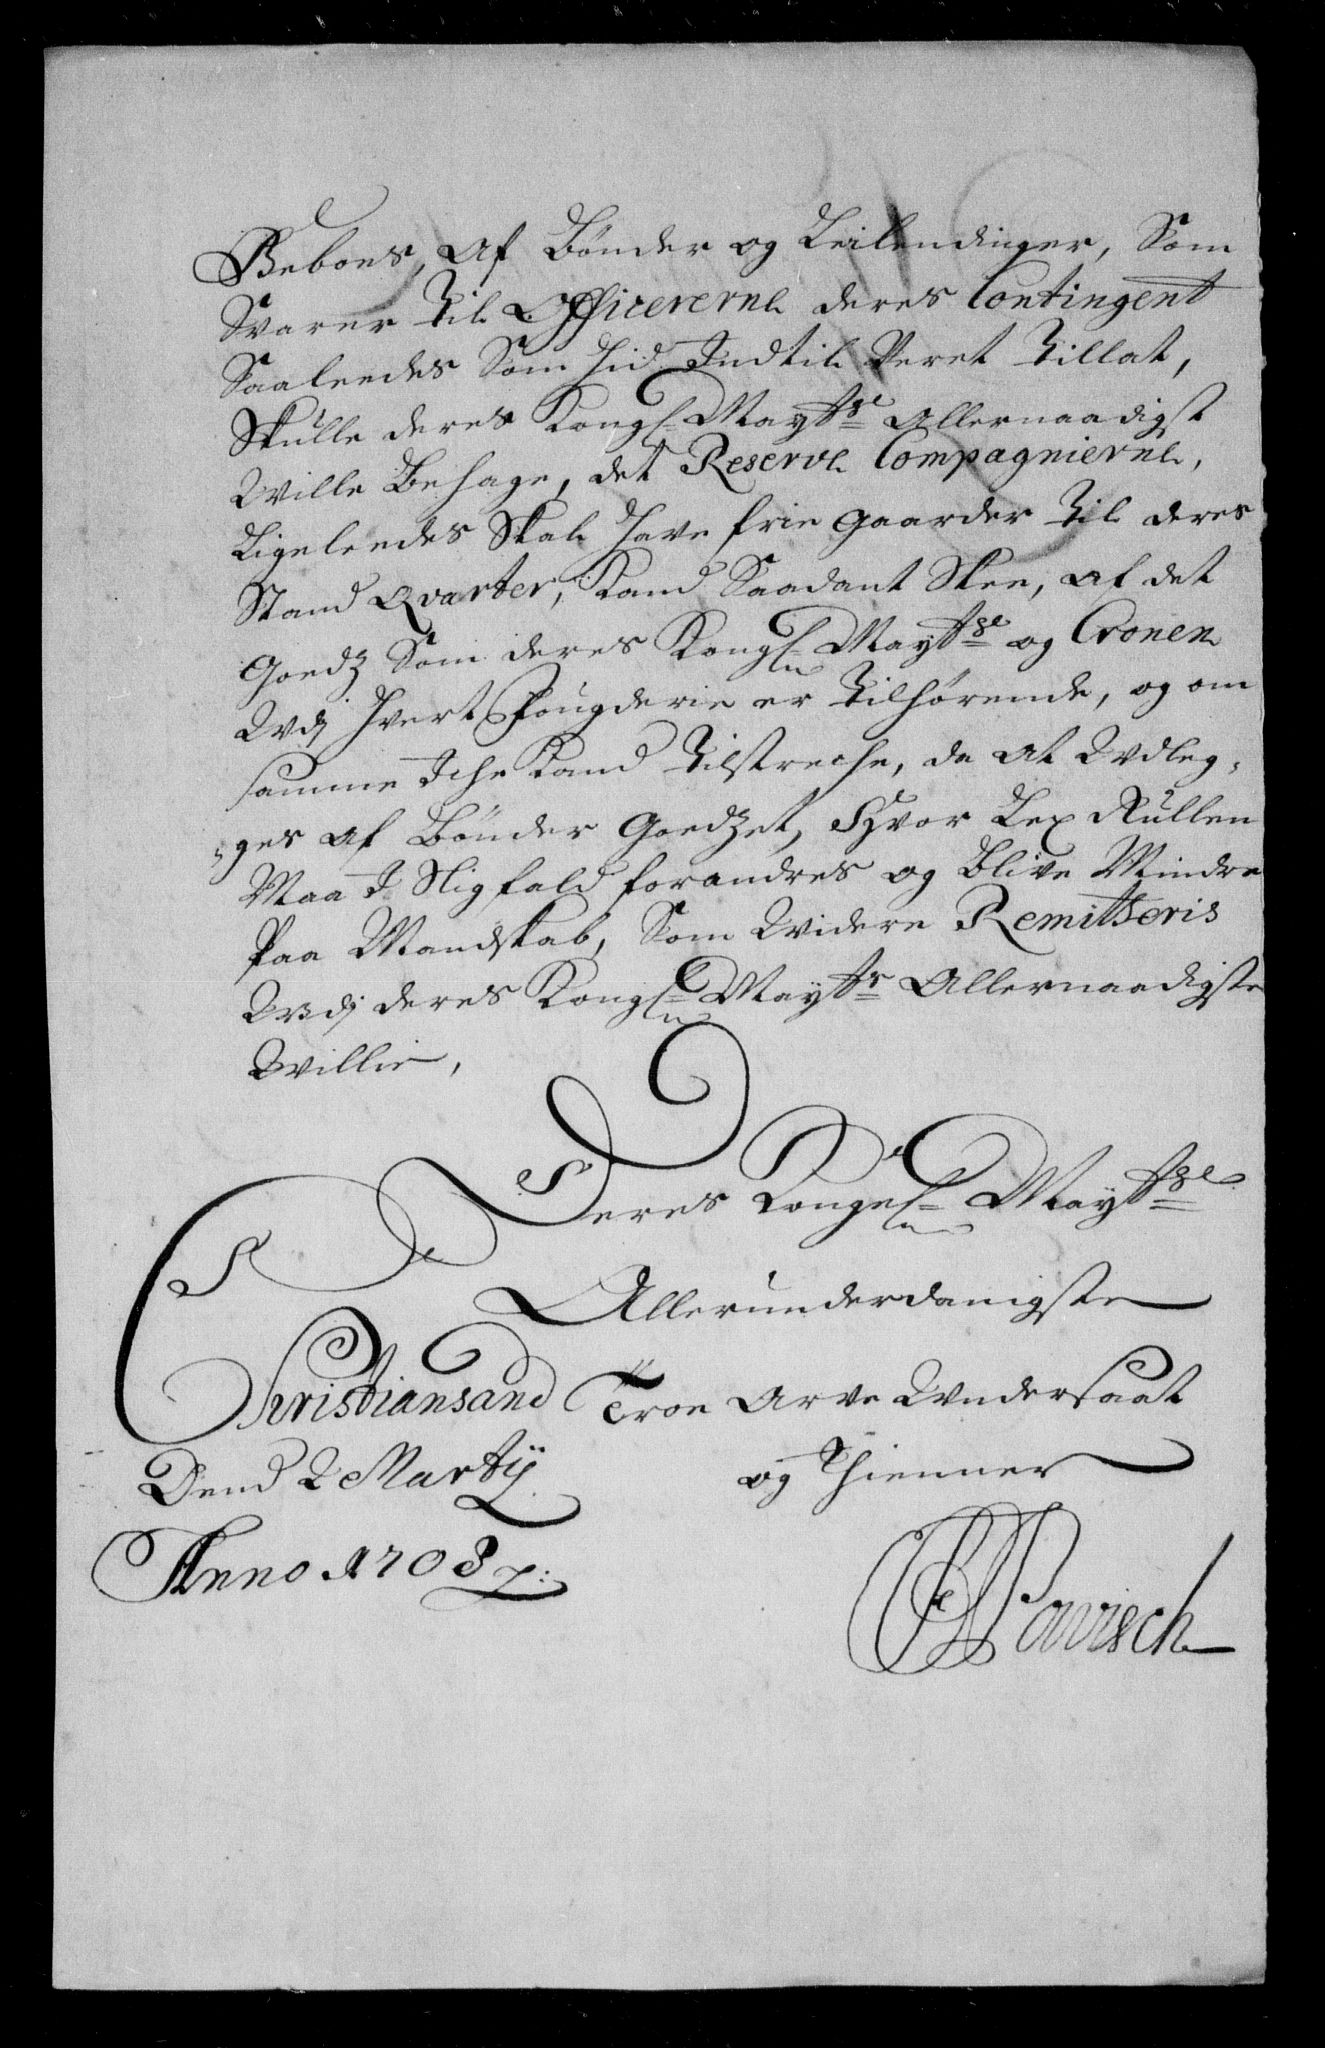 Beboes, af Bönder og Leilendinger, Som
Svarer til Officererne deres Contingent
Saaleedes Som hid Indtil Veret tillat,
Skulle deres Kongl Maytts Allernaadigst
Wille Behage, det Reserve Compagnierne,
Ligeleedes Skal have frie gaarder til deres
Stand Qvarter, Kand Saadant Skee, af det
Goedz Som deres Kongl Maytts og Cronen
Wdj hvert Fougderie er tilhørende, og om
samme Iche Kand tilstreche, da at Wdleg,
„ges af Bönder Goedzet, Hvor Lex Rullen
Maa I Sligfald forandres og blive Mindre
Paa Mandskab, Som Widere Remitteris
Wdj deres Kongl Mayts Allernaadigste
Willie,
Deres Kongel Maytts
Allerunderdanigste
Christiansand Troe Arve Wndersaat
Dend 2 Martij og Thienner
Anno 1703
Powisch